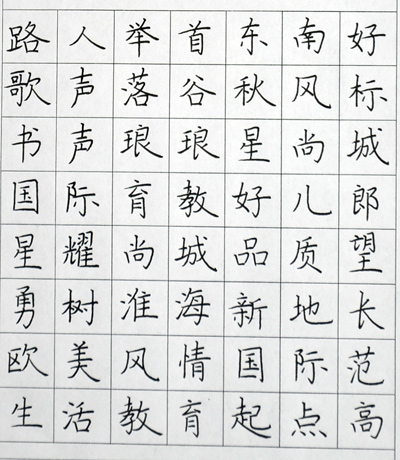 路人举首东南好
歌声落谷秋风标
书声琅琅星尚城
国际育教好儿郎
星耀尚城品质望
勇树淮海新地长
欧美风情国际范
生活教育起点高